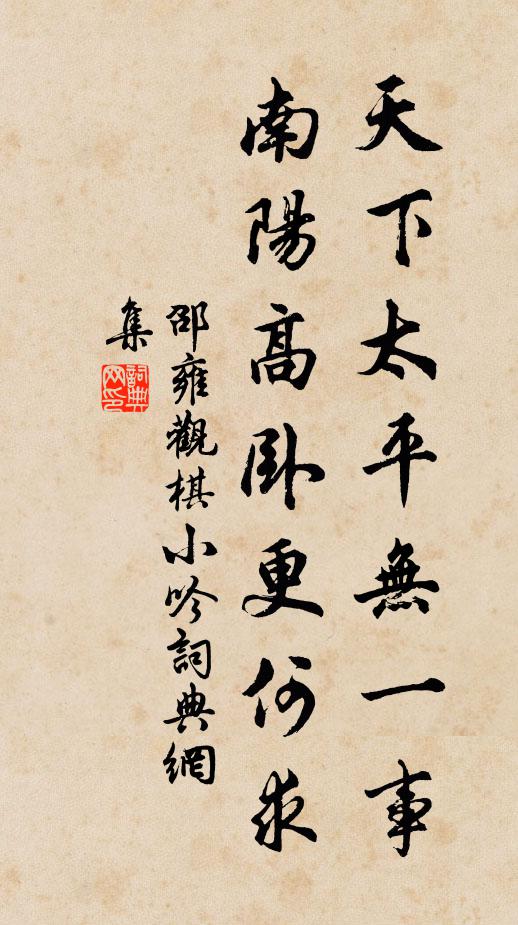 天下太平無一事
南陽高卧更何求
邵雍觀棋小吟詞典網
集
詞典
网印